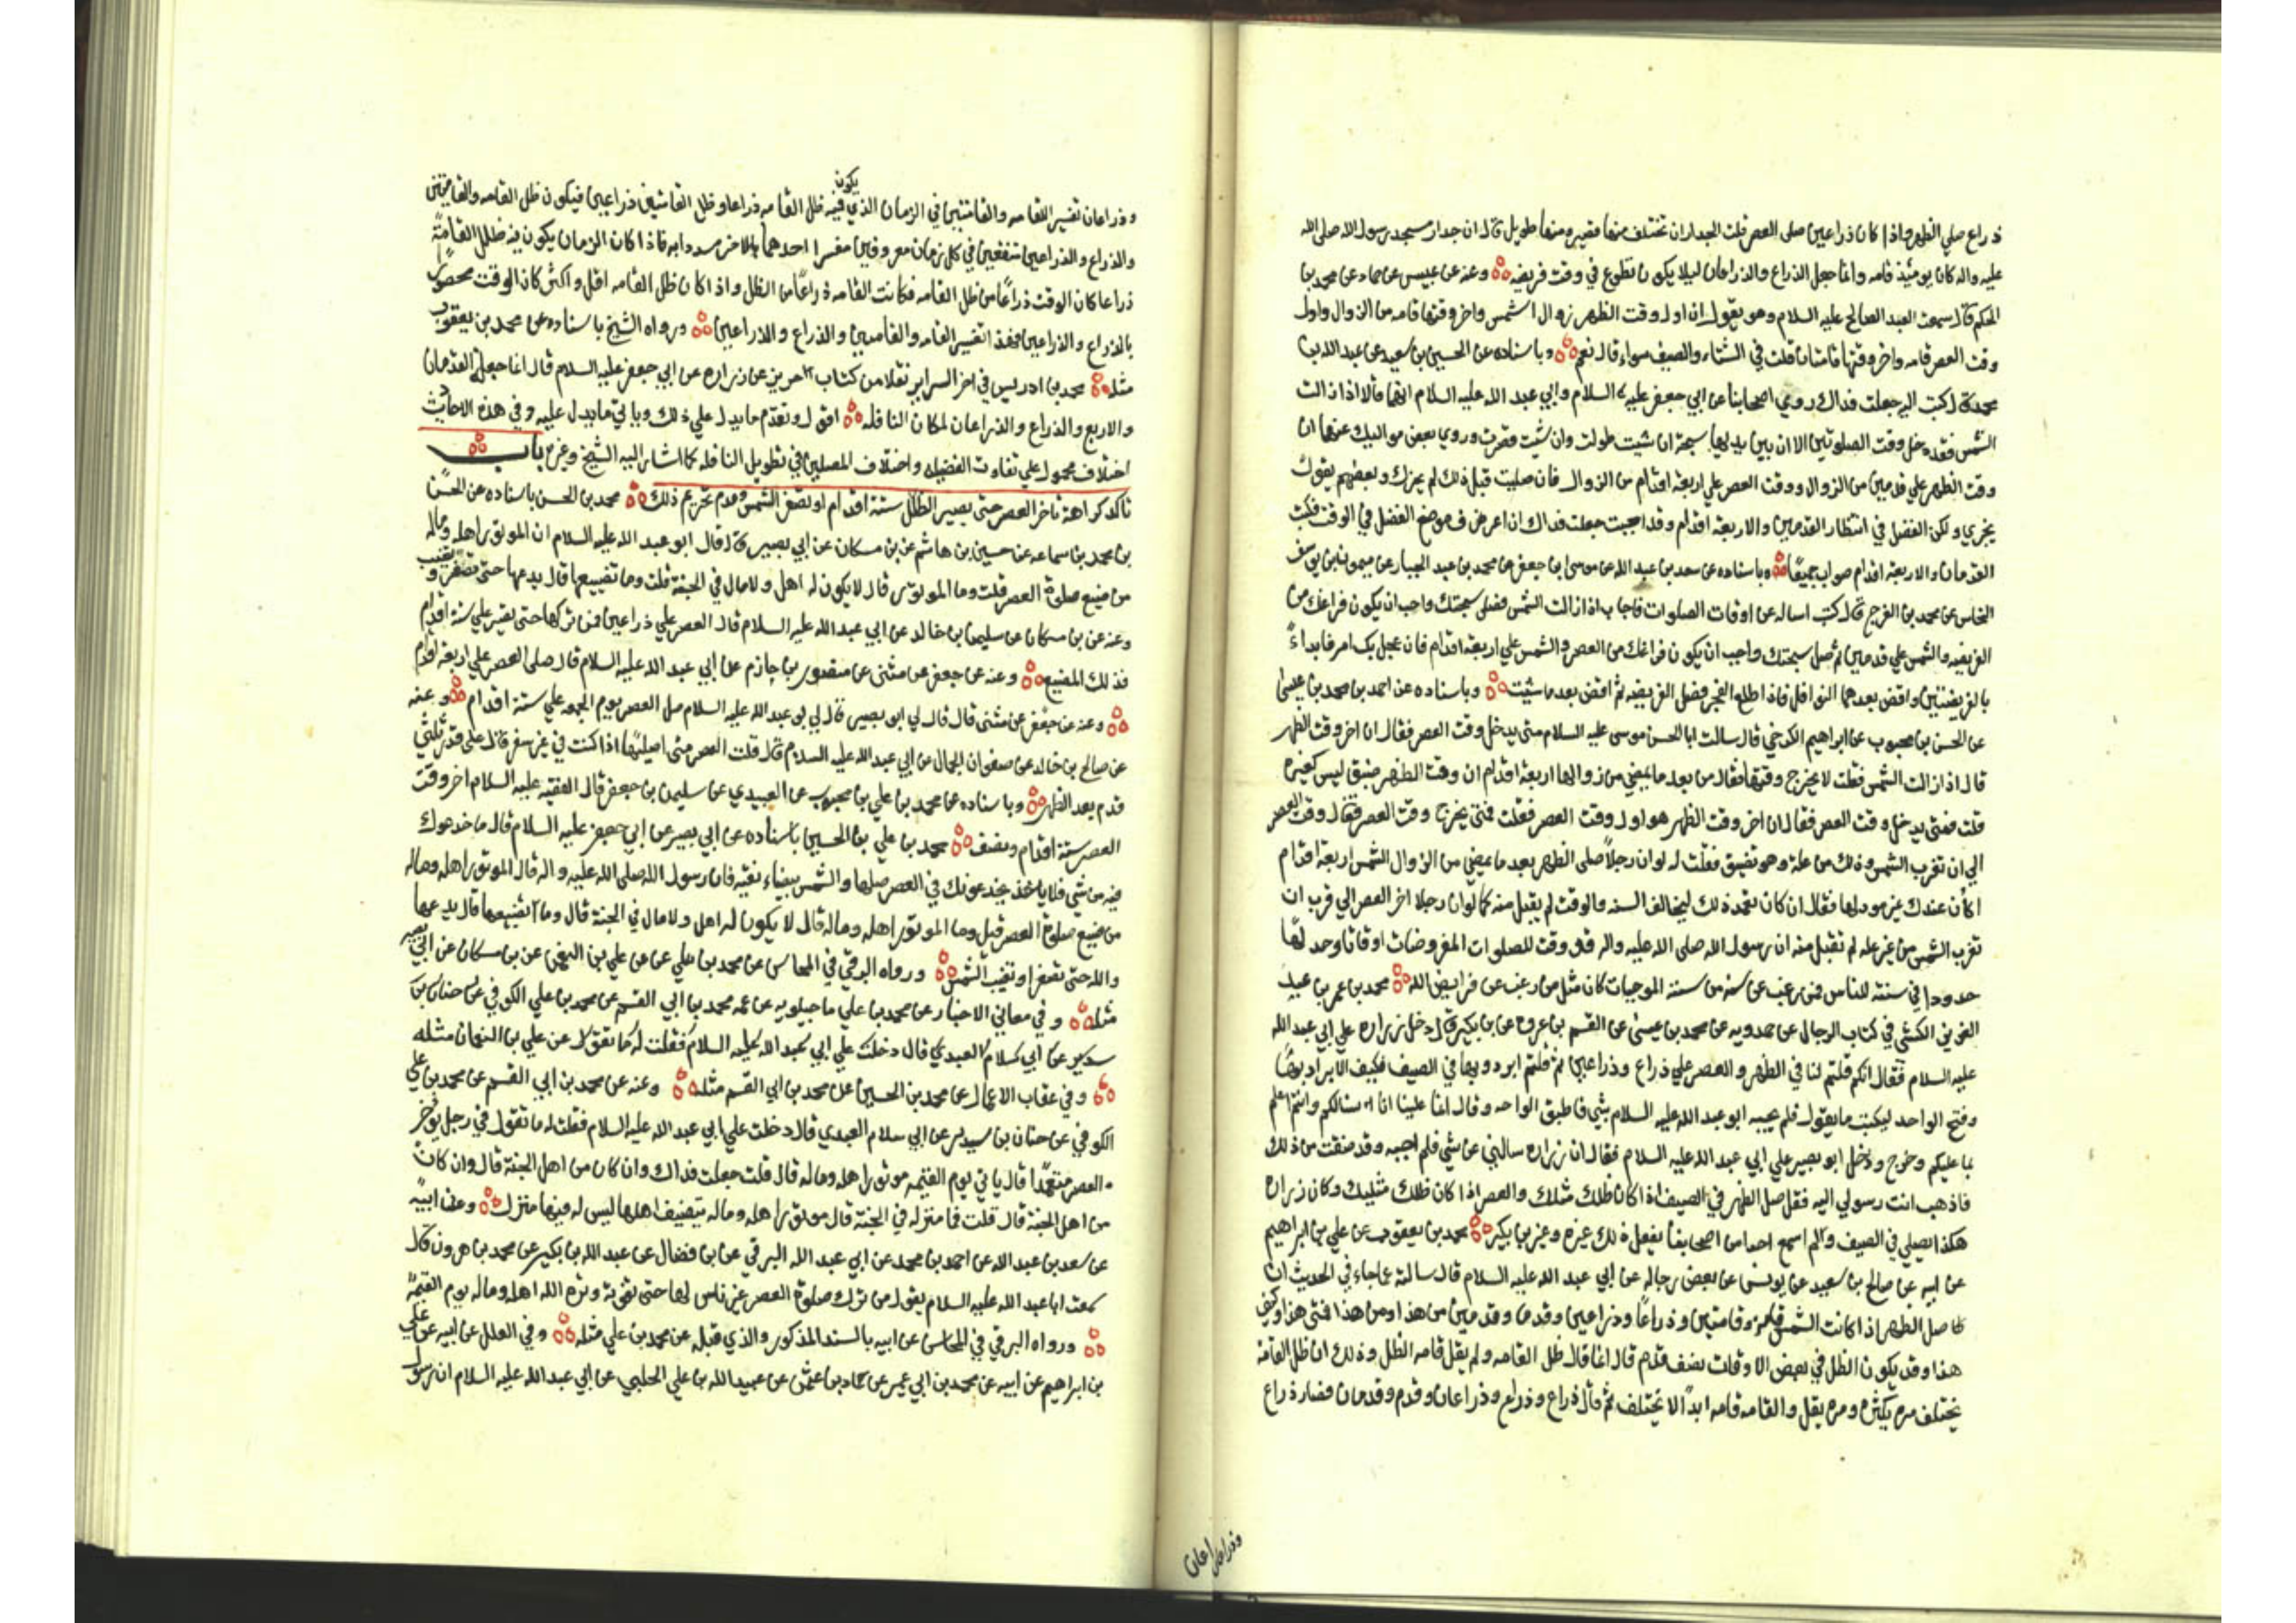 ذراع صلي الظهر واذا كان ذراعين صلى العصر قلت الجدران تختلف منها قصير ومنها طويل قال ان جدار مسجد رسول الله صلى الله
عليه واله كان يومئذ قامه وانما جعل الذراع والذراعان ليلا يكون تطوع في وقت فريضه وعنه عن عبيس عن حماد عن محمد بن
الحكم قال سمعت العبد الصالح عليه السلام وهو يقول ان اول وقت الظهر زوال الشمس واخر وقتها قامه من الزوال واول
وقت العصر قامه واخر وقتها قامتان قلت في الشتاء والصيف سواء قال نعم وباسناده عن الحسين بن سعيد عن عبد الله بن
محمد قال كتبت اليه جعلت فداك روي اصحابنا عن ابي جعفر عليه السلام وابي عبد الله عليه السلام انهما قالا اذا زالت
الشمس فقد دخل وقت الصلوتين الا ان بين يديها سبحة ان شيت طولت وان شيت قصرت وروي بعض مواليك عنهما ان
وقت الظهر علي قدمين من الزوال ووقت العصر علي اربعة اقدام من الزوال فان صليت قبل ذلك لم يجزك وبعضهم يقول
يجزي ولكن الفضل في انتظار القدمين والاربعة اقدام وقد احببت جعلت فداك ان اعرف موضع الفضل في الوقت فكتب
القدمان والاربعة اقدام صواب جميعًا وباسناده عن سعد بن عبد الله عن موسى بن جعفر عن محمد بن عبد الجبار عن ميمون بن يوسف
النخاس عن محمد بن الفرج قال كتبت اساله عن اوقات الصلوات فاجاب اذا زالت الشمس فصل سبحتك واحب ان يكون فراغك من
الفريضه والشمس علي قدمين ثم صل سبحتك واحب ان يكون فراغك من العصر والشمس علي اربعة اقدام فان عجل بك امر فابداء
بالفريضتين واقض بعدهما النوافل فاذا طلع الفجر فصل الفريضه ثم اقض بعد ما شيت وباسناده عن احمد بن محمد بن عيسى
عن الحسن بن محبوب عن ابراهيم الكرخي قال سالت ابا الحسن موسى عليه السلام متى يدخل وقت الظهر
قال اذا زالت الشمس فقلت متى يخرج وقتها فقال من بعد ما يمضي من زوالها اربعة اقدام ان وقت الظهر ضيق ليس كغيره
قلت فمتى يدخل وقت العصر فقال ان اخر وقت الظهر هو اول وقت العصر فقلت فمتى يخرج وقت العصر فقال وقت العصر
الي ان تغرب الشمس وذلك من علة وهو تضييق فقلت له لو ان رجلاً صلى الظهر بعد ما يمضي من الزوال الشمس اربعة اقدام
اكان عندك غير مود لها فقال ان كان تعمد ذلك ليخالف السنه والوقت لم يقبل منه كما لو ان رجلا اخر العصر الي قرب ان
تغرب الشمس من غير عله لم تقبل منه ان رسول الله صلى الله عليه واله قد وقت للصلوات المفروضات اوقاتا وحد لها
حدودا في سنته للناس فمن رغب عن سنه من سنة الموجبات كان مثل من رغب عن فرايض الله محمد بن عمر بن عبد
العزيز الكشي في كتاب الرجال عن حمدويه عن محمد بن عيسى عن القسم بن عروة عن بن بكير قال دخل زراره علي ابي عبد الله
عليه السلام فقال انكم قلتم لنا في الظهر والعصر علي ذراع وذراعين ثم قلتم ابردوا بها في الصيف فكيف الابراد بها
وفتح الواحه ليكتب ما يقول فلم يجبه ابو عبد الله عليه السلام بشي فاطبق الواحه وقال انما علينا ان نسالكم وانتم اعلم
بما عليكم وخرج ودخل ابو بصير علي ابي عبد الله عليه السلام فقال ان زراره سالني عن شي فلم اجبه وقد ضقت من ذلك
فاذهب انت رسولي اليه فقل صل الظهر في الصيف اذا كان ظلك مثلك والعصر اذا كان ظلك مثليك وكان زراره
هكذا يصلي في الصيف ولم اسمع احدا من اصحابنا يفعل ذلك غيره وغير بن بكير محمد بن يعقوب عن علي بن ابراهيم
عن ابيه عن صالح بن سعيد عن يونس عن بعض رجاله عن ابي عبد الله عليه السلام قال سالته عما جاء في الحديث ان
صل الظهر اذا كانت الشمس قامه وقامتين وذراعًا وذراعين وقدما وقدمين من هذا ومن هذا فمتى هذا وكيف
هذا وقد يكون الظل في بعض الاوقات نصف قدم قال انما قال ظل القامه ولم يقل قامه الظل وذلك ان ظل القامة
يختلف مره يكثر ومره يقل والقامه قامه ابداً لا تختلف ثم قال ذراع وذراعان وقدم وقدمان فصار ذراع
وذراعان
وذراعان تفسير القامه والقامتين في الزمان الذي يكون فيه ظل القامه ذراعا وظل القامتين ذراعين فيكون ظل القامه والقامتين
والذراع والذراعين متفقين في كل زمان معروفين مفسرا احدهما بالاخر مسددا به فاذا كان الزمان يكون فيه ظل القامة
ذراعا كان الوقت ذراعًا من ظل القامه فكانت القامه ذراعًا من الظل واذا كان ظل القامه اقل واكثر كان الوقت محصورا
بالذراع والذراعين فهذا تفسير القامه والقامتين والذراع والذراعين ورواه الشيخ باسناده عن محمد بن يعقوب
مثله محمد بن ادريس في اخر السراير نقلا من كتاب حريز عن زراره عن ابي جعفر عليه السلام قال انما جعل القدمان
والاربع والذراع والذراعان لمكان النافله اقول وتقدم ما يدل علي ذلك وياتي ما يدل عليه وفي هذه الاحاديث
اختلاف محمول علي تفاوت الفضيله واختلاف المصلين في تطويل النافله كما اشار اليه الشيخ وغيره باب
تاكد كراهة تاخر العصر حتى يصير الظل ستة اقدام او تصفر الشمس وعدم تحريم ذلك محمد بن الحسن باسناده عن الحسن
بن محمد بن سماعه عن حسين بن هاشم عن بن مسكان عن ابي بصير قال قال ابو عبد الله عليه السلام ان الموتور اهله وماله
من ضيع صلوة العصر قلت وما الموتور قال لا يكون له اهل ولا مال في الجنة قلت وما تضييعها قال يدعها حتى تصفر وتغيب
وعنه عن بن مسكان عن سليمان بن خالد عن ابي عبد الله عليه السلام قال العصر علي ذراعين فمن تركها حتى تصير علي ستة اقدام
فذلك المضيع وعنه عن جعفر عن مثنى عن منصور بن حازم عن ابي عبد الله عليه السلام قال صلى العصر علي اربعة اقدام
وعنه عن جعفر عن مثنى قال قال لي ابو بصير قال لي ابو عبد الله عليه السلام صل العصر يوم الجمعه علي ستة اقدام وعنه
عن صالح بن خالد عن صفوان الجمال عن ابي عبد الله عليه السلام قال قلت العصر متى اصليها اذا كنت في غير سفر قال على قدر ثلثي
قدم بعد الظهر وباسناده عن محمد بن علي بن محبوب عن العبيدي عن سليمن بن جعفر قال الفقيه عليه السلام اخر وقت
العصر ستة اقدام ونصف محمد بن علي بن الحسين باسناده عن ابي بصير عن ابي جعفر عليه السلام قال ما خدعوك
فيه من شي فلا يخدعونك في العصر صلها والشمس بيضاء نقيه فان رسول الله صلى الله عليه واله قال الموتور اهله وماله
من ضيع صلوة العصر قيل وما الموتور اهله وماله قال لا يكون له اهل ولا مال في الجنة قال وما تضييعها قال يدعها
والله حتى تصفر او تغيب الشمس ورواه البرقي في المحاسن عن محمد بن علي عن علي بن النعمن عن بن مسكان عن ابي بصير
مثله وفي معاني الاخبار عن محمد بن علي ماجيلويه عن عمه محمد بن ابي القسم عن محمد بن علي الكوفي عن حنان بن
سدير عن ابي سلام العبدي قال دخلت علي ابي عبد الله عليه السلام فقلت له ما تقول عن علي بن النعمان مثله
وفي عقاب الاعمال عن محمد بن الحسين عن محمد بن ابي القسم مثله وعنه عن محمد بن ابي القسم عن محمد بن علي
الكوفي عن حنان بن سدير عن ابي سلام العبدي قال دخلت علي ابي عبد الله عليه السلام فقلت له ما تقول في رجل يوخر
العصر متعمدًا قال ياتي يوم القيمه موتورا اهله وماله قال قلت جعلت فداك وان كان من اهل الجنة قال وان كان
من اهل الجنة قال قلت فما منزله في الجنة قال موتورا اهله وماله يتضيف اهلها ليس له فيها منزل وعن ابيه
عن سعد بن عبد الله عن احمد بن محمد عن ابي عبد الله البرقي عن بن فضال عن عبد الله بن بكير عن محمد بن هرون قال
سمعت ابا عبد الله عليه السلام يقول من ترك صلوة العصر غير ناس لها حتى تفوته وتره الله اهله وماله يوم القيمة
ورواه البرقي في المحاسن عن ابيه بالسند المذكور والذي قبله عن محمد بن علي مثله وفي العلل عن ابيه عن علي
بن ابراهيم عن ابيه عن محمد بن ابي عمير عن حماد بن عثمن عن عبيد الله بن علي الحلبي عن ابي عبد الله عليه السلام ان رسول